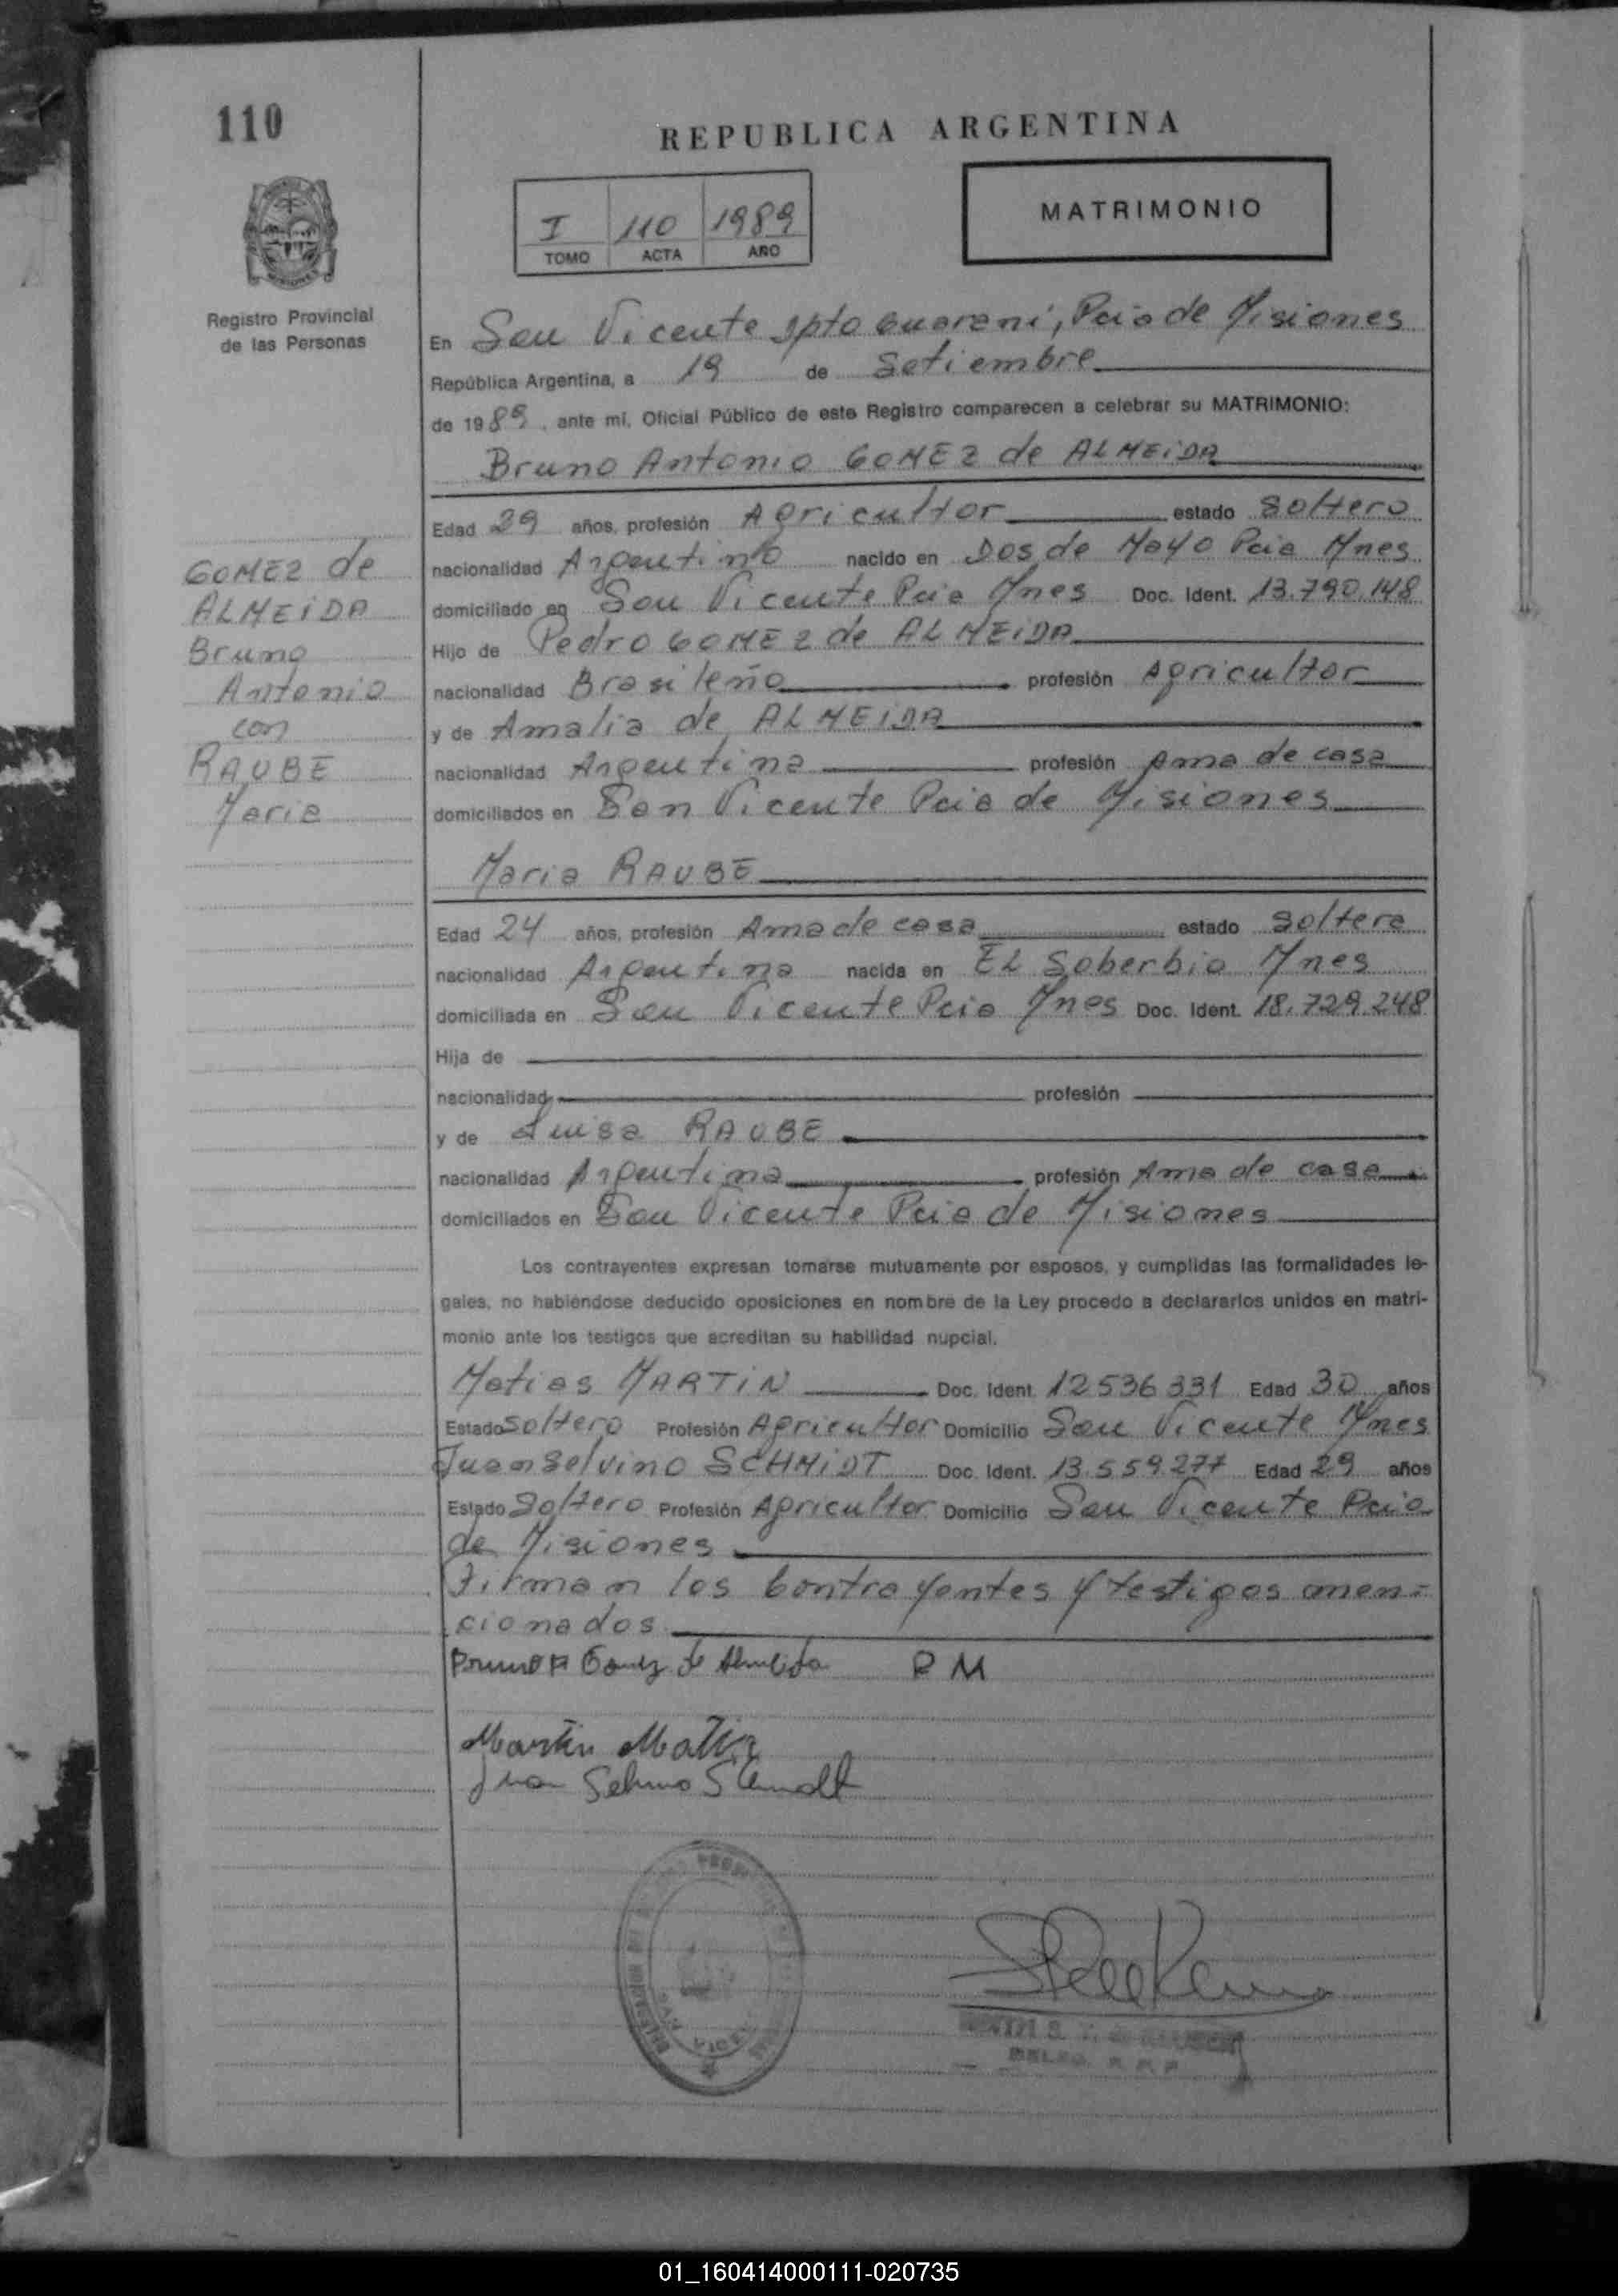 110
REPUBLICA ARGENTINA
I 110 1989
TOMO ACTA AÑO
MATRIMONIO
Registro Provincial
de las Personas
En San Vicente Dpto Guarani, Pcia de Misiones
República Argentina, a 19 de Setiembre
de 1989, ante mi, Oficial Público de este Registro comparecen a celebrar su MATRIMONIO:
Bruno Antonio GOMEZ de ALMEiDA
Edad 29 años, profesión Agricultor estado Soltero
nacionalidad Argentino nacido en Dos de Mayo Pcia Mnes
domiciliado en San Vicente Pcia Mnes Doc. Ident. 13.790.148
Hijo de Pedro GOMEZ de ALMEiDA
nacionalidad Brasileño profesión Agricultor
y de Amalia de ALMEiDA
nacionalidad Argentina profesión Ama de casa
domiciliados en San Vicente Pcia de Misiones
GOMEZ de
ALMEiDA
Bruno
Antonio
con
RAUBE
Maria
Maria RAUBE
Edad 24 años, profesión Ama de casa estado Soltera
nacionalidad Argentina nacida en EL Soberbio Mnes
domiciliada en San Vicente Pcia Mnes Doc. Ident. 18.729.248
Hija de
nacionalidad profesión
y de Luisa RAUBE
nacionalidad Argentina profesión Ama de casa
domiciliados en San Vicente Pcia de Misiones
Los contrayentes expresan tomarse mutuamente por esposos, y cumplidas las formalidades le-
gales, no habiéndose deducido oposiciones en nombre de la Ley procedo a declararlos unidos en matri-
monio ante los testigos que acreditan su habilidad nupcial.
Matias MARTiN Doc. Ident. 12536331 Edad 30 años
Estado Soltero Profesión Agricultor Domicilio San Vicente Mnes
Juan Selvino SCHMiDT Doc. Ident. 13.559.277 Edad 29 años
Estado Soltero Profesión Agricultor Domicilio San Vicente Pcia
de Misiones
Firman los Contrayentes y testigos men=
cionados
Bruno A Gomez de Almeida R M
Martin Matias
Juan Selvino Schmidt
DELEG. R. P. P.
01_160414000111-020735